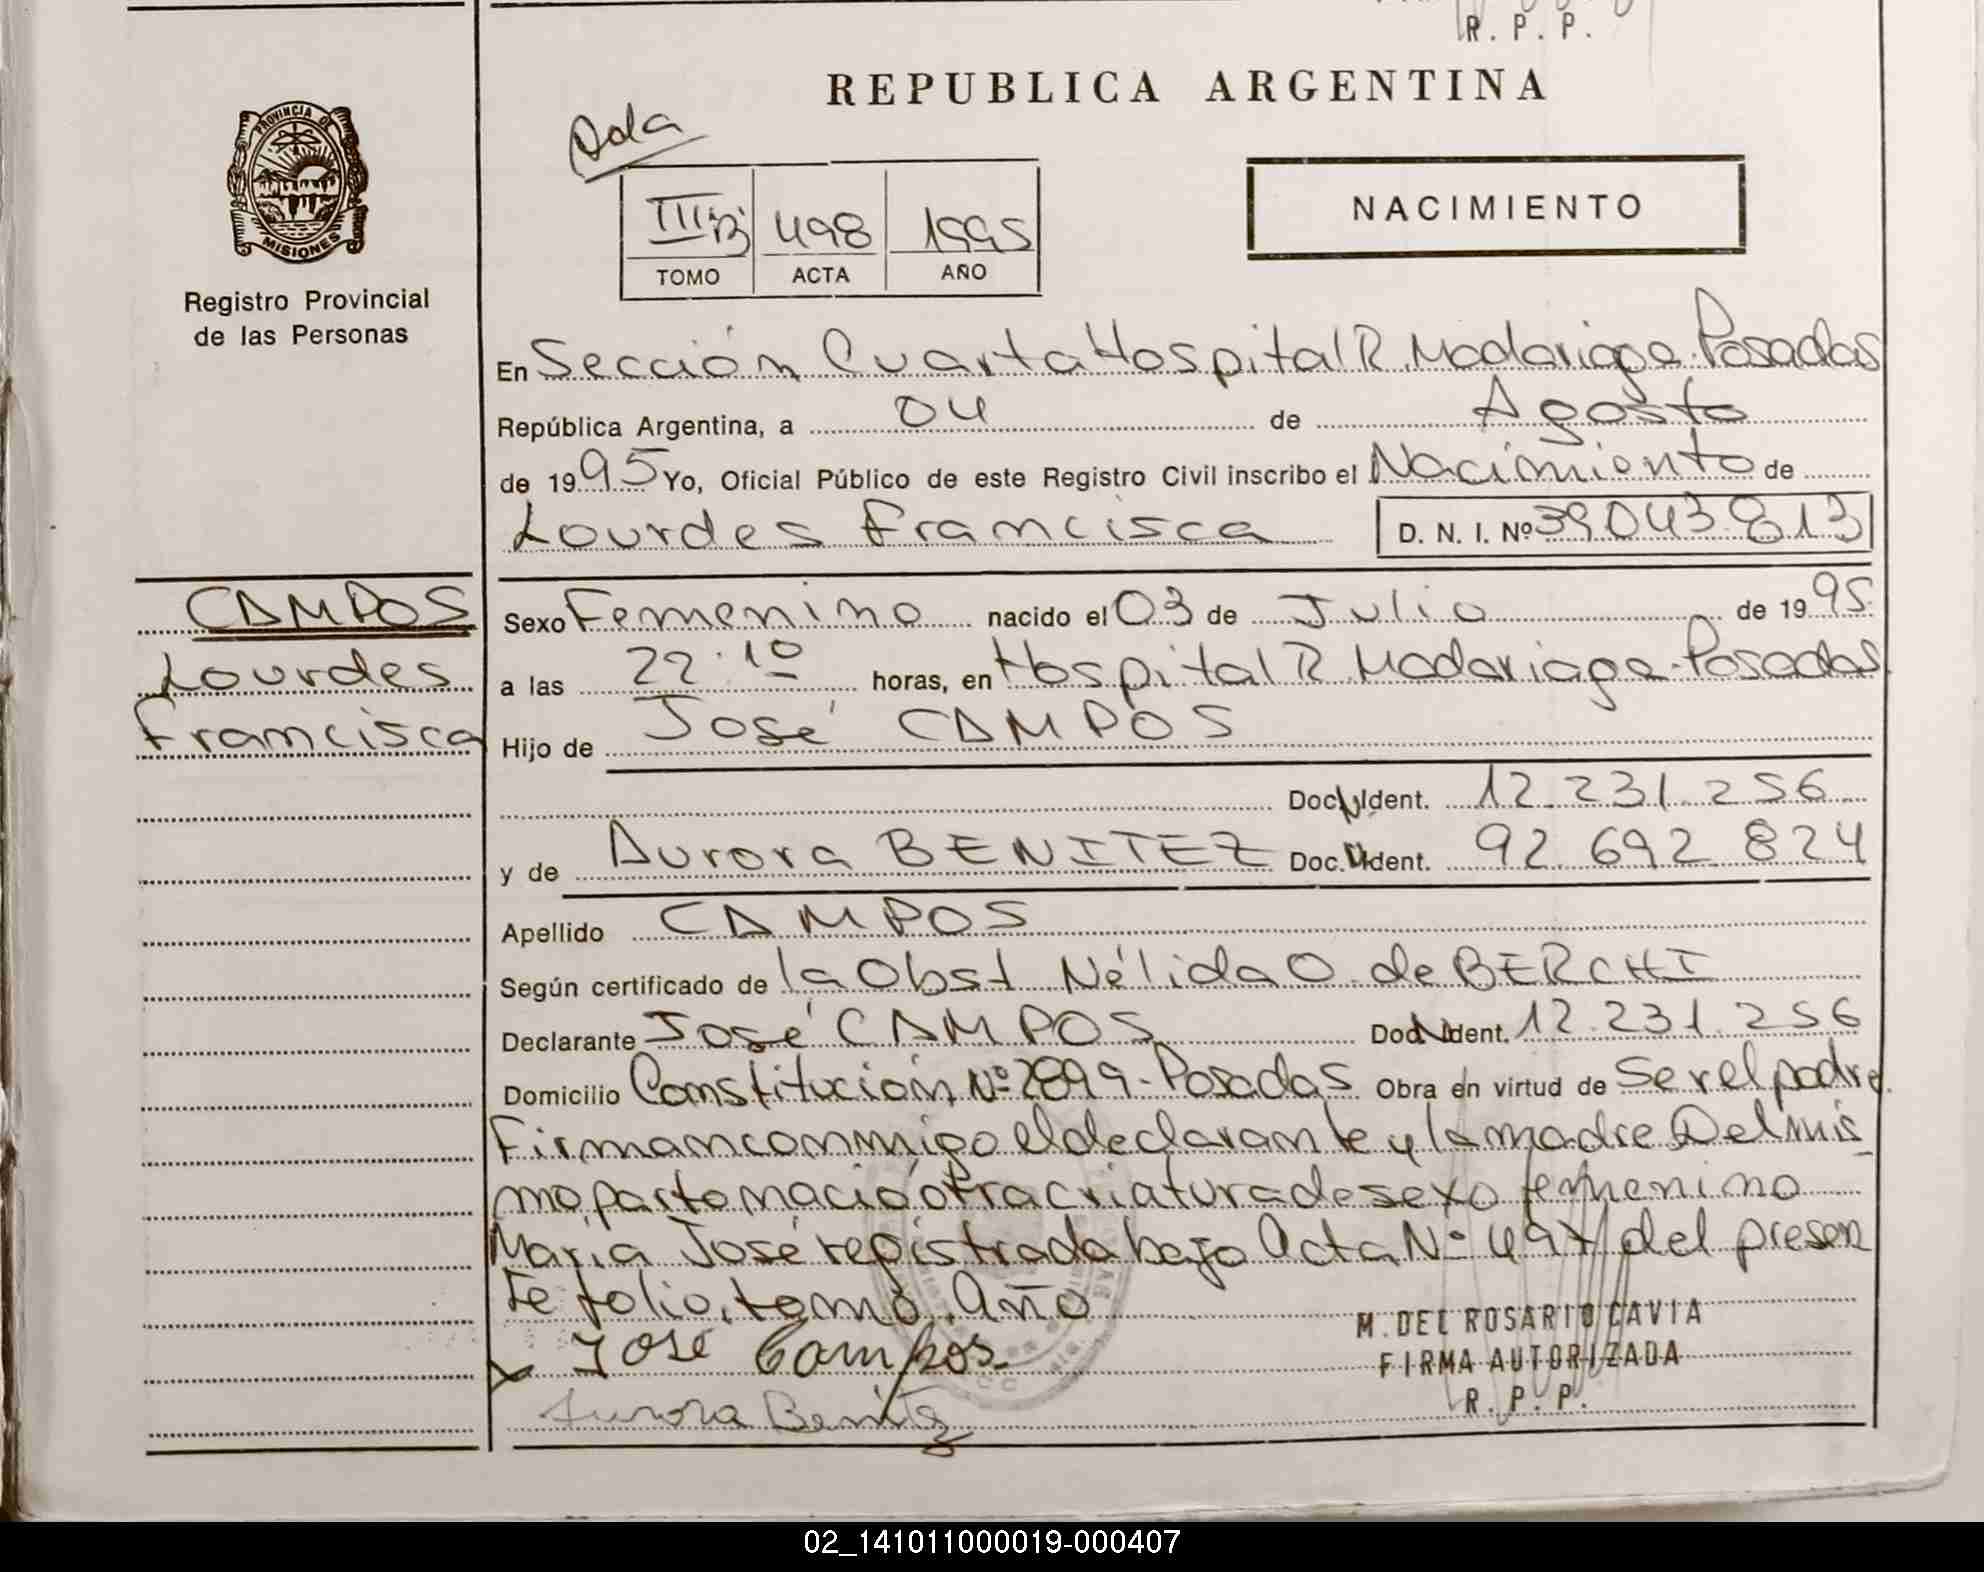 R. P. P.
REPUBLICA ARGENTINA
PROVINCIA DE
MISIONES
Registro Provincial
de las Personas
Dda
III B 498 1995
TOMO ACTA AÑO
NACIMIENTO
En Sección Cuarta Hospital R. Madariaga - Posadas
República Argentina, a 04 de Agosto
de 1995 Yo, Oficial Público de este Registro Civil inscribo el Nacimiento de
Lourdes Francisca D. N. I. Nº 39043813
CAMPOS
Lourdes
Francisca
Sexo Femenino nacido el 03 de Julio de 1995
a las 22:10 horas, en Hospital R. Madariaga - Posadas
Hijo de José CAMPOS
Doc. Ident. 12.231.256
y de Aurora BENITEZ Doc. Ident. 92.692.824
Apellido CAMPOS
Según certificado de la Obst Nélida O. de BERCHI
Declarante José CAMPOS Doc. Ident. 12.231.256
Domicilio Constitución Nº 2899 - Posadas Obra en virtud de Ser el padre
Firman conmigo el declarante y la madre Del mis
mo parto nació otra criatura de sexo femenino
María José registrada bajo Acta Nº 497 del presen
te folio, tomo, Año
José Campos
Aurora Benitez
M. DEL ROSARIO CAVIA
FIRMA AUTORIZADA
R. P. P.
02_141011000019-000407